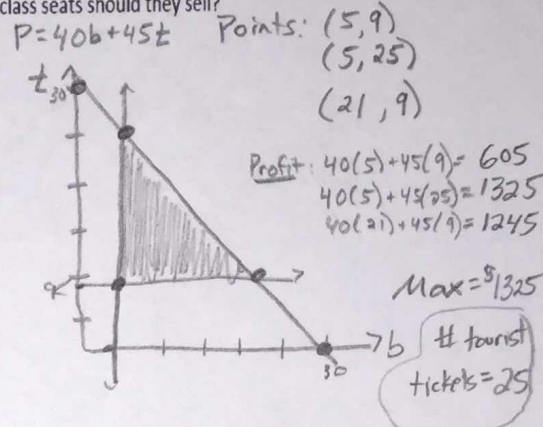 class seats should they sell?
P=40b+45t
Points: (5,9)
(5,25)
(21,9)
Profit: 40(5)+45(9)= 605
40(5)+45(25)=1325
40(21)+45(9)=1245
t
30
9
b
30
Max=$1325
# tourist
tickets=25